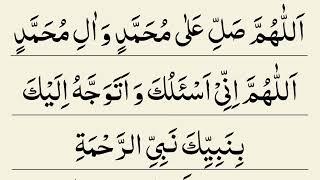 اَللّٰهُمَّ صَلِّ عَلٰى مُحَمَّدٍ وَاٰلِ مُحَمَّدٍ
اَللّٰهُمَّ اِنِّيْ اَسْئَلُكَ وَ اَتَوَجَّهُ اِلَيْكَ
بِنَبِيِّكَ نَبِيِّ الرَّحْمَةِ